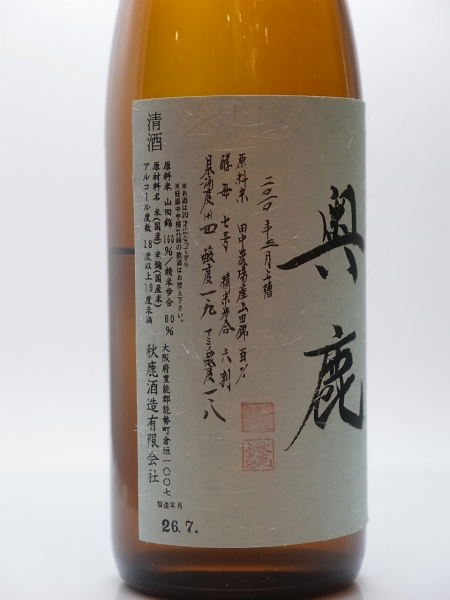 奥鹿
二〇一〇年三月上槽
原料米 田中農場産山田錦 百%
酵母 七号 精米歩合 六割
日本酒度 +四 酸度 一・九 アミノ酸度 一・八
※お酒は20才になってから
原料米 山田錦 100%/精米歩合 60%
原材料名 米(国産)米麹(国産米)
アルコール度数 18度以上19度未満
清酒
大阪府豊能郡能勢町倉垣一〇〇七
秋鹿酒造有限会社
製造年月
26.7.